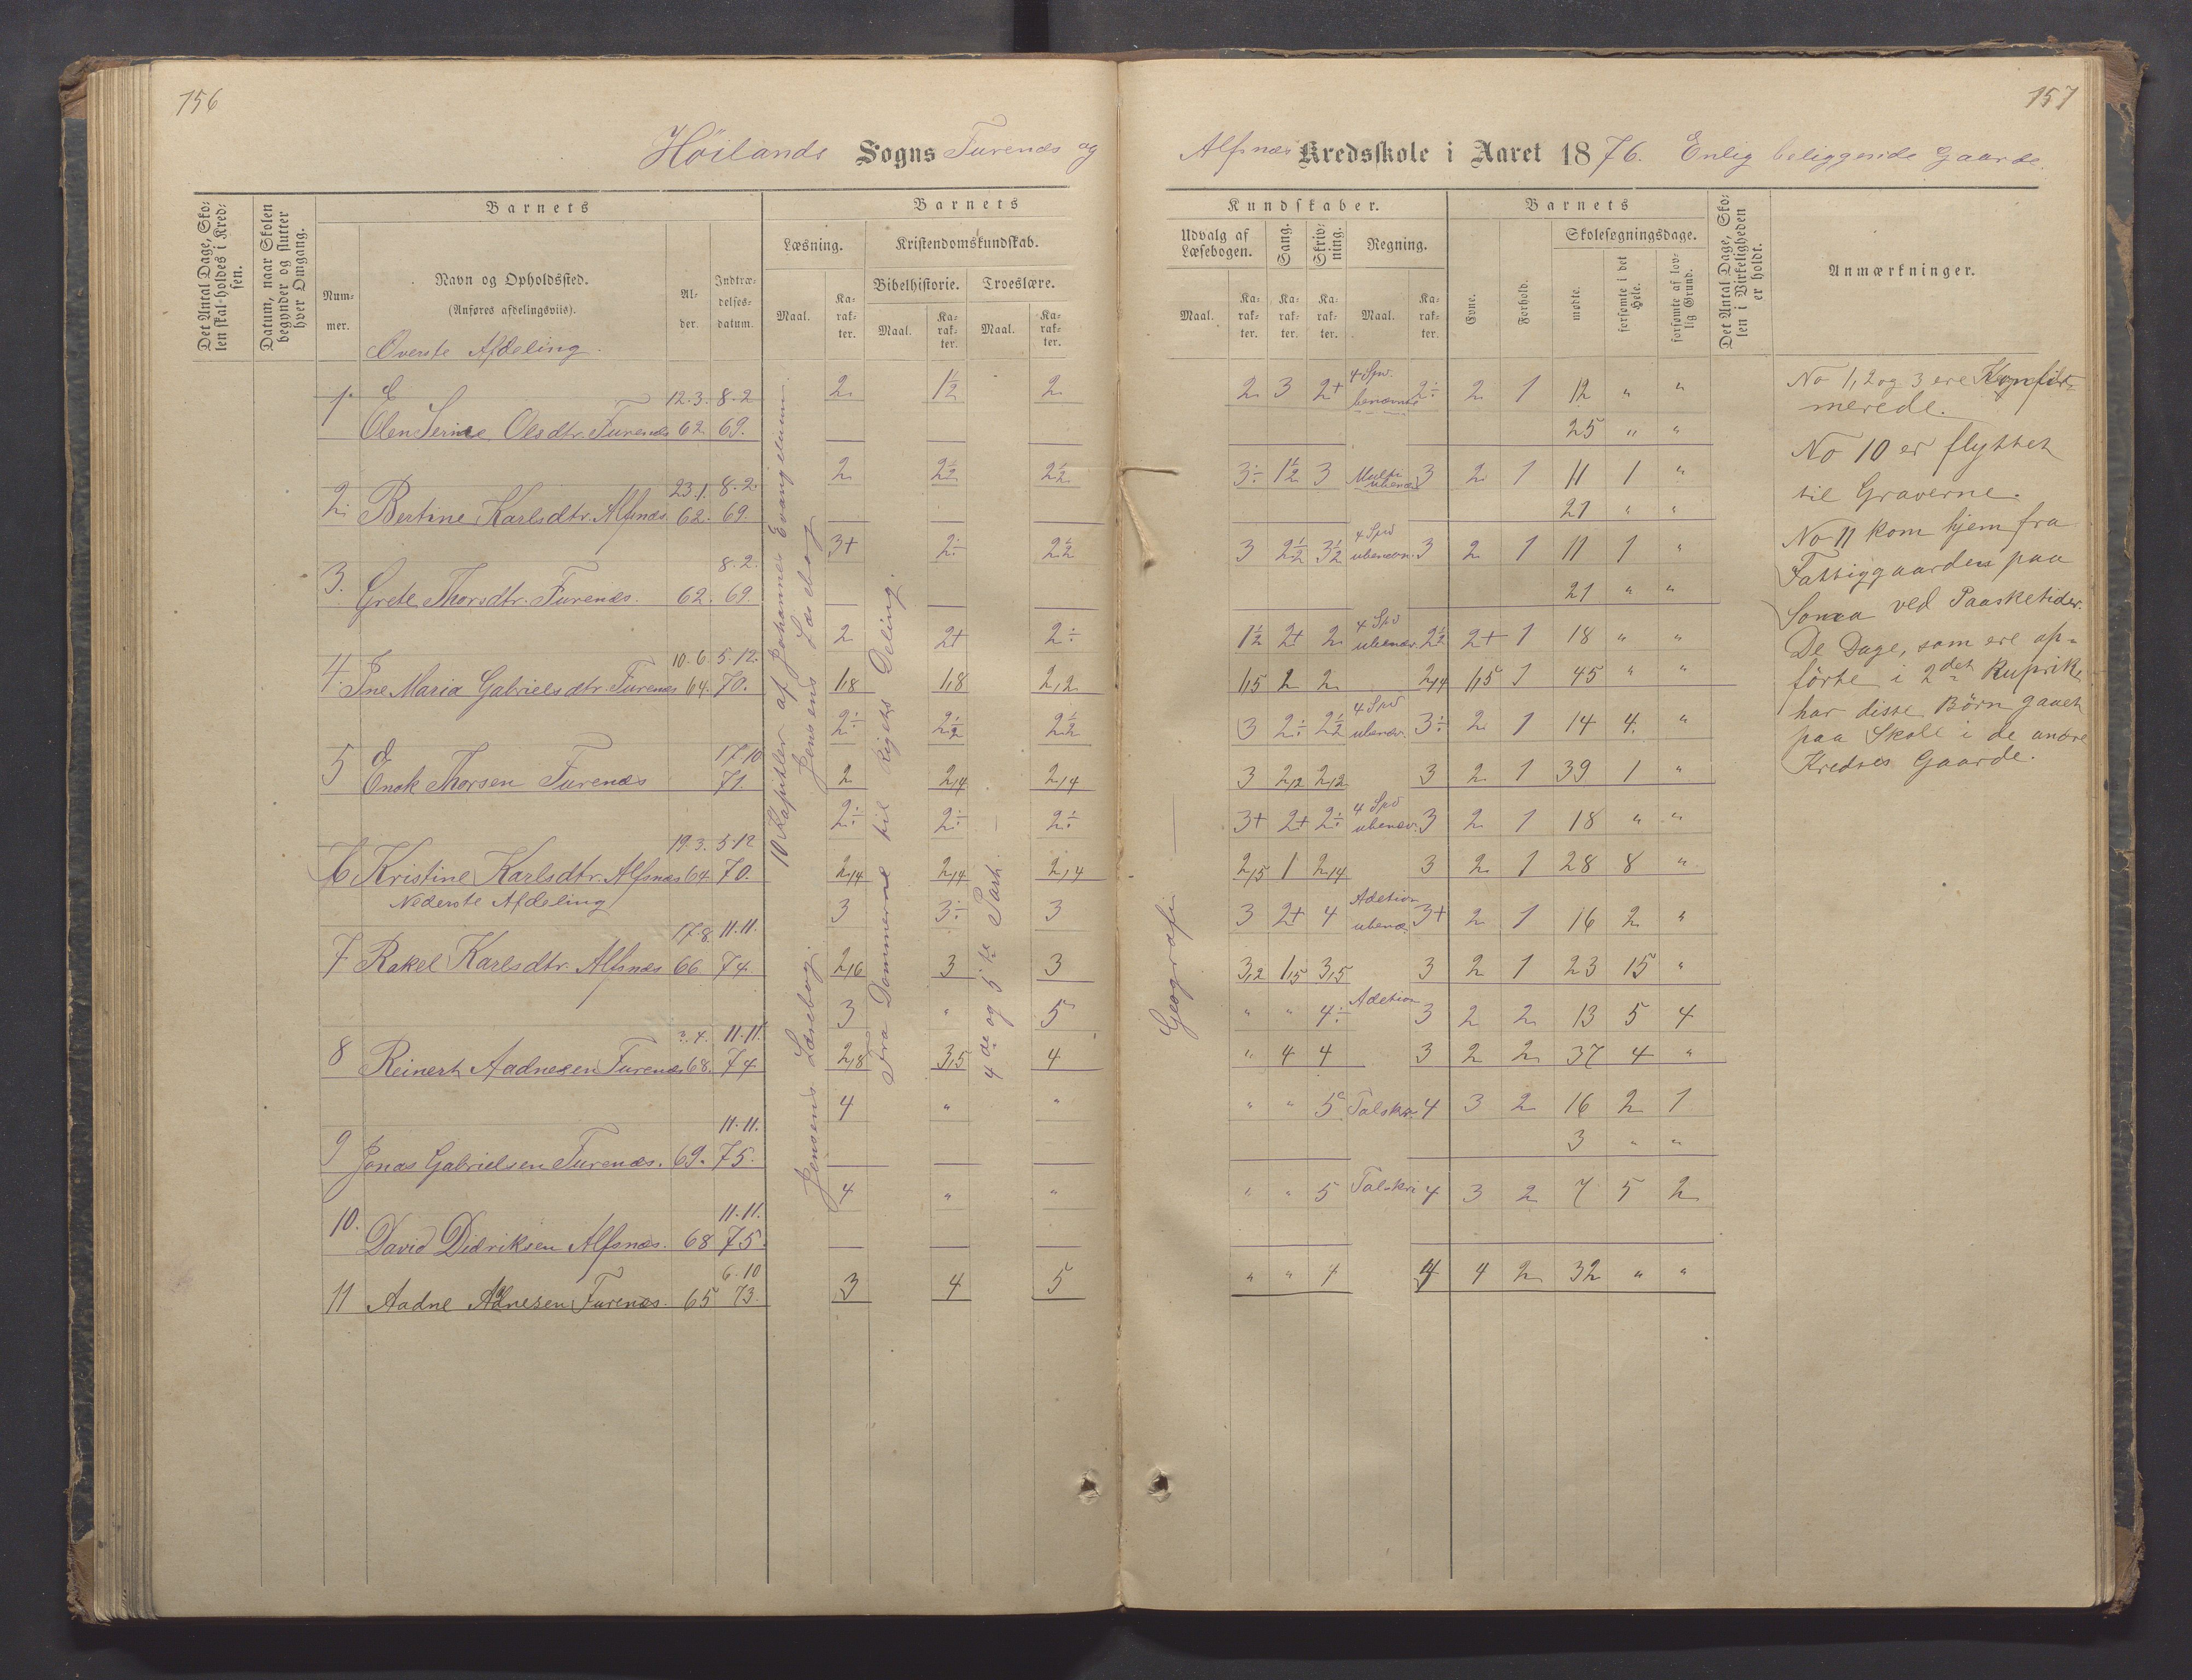 156
157
Höilands Sogns Furenæs og
Alfsnæs Kredsskole i Aaret 1876. Enlig beliggende Gaarde.
Det Antal Dage, Skolen skal holdes i Kredsen.
Datum, naar Skolen begynder og slutter hver Omgang.
Barnets
Nummer.
Navn og Opholdssted.
(Anføres afdelingsviis).
Alder.
Indtrædelsesdatum.
Barnets
Læsning.
Kristendomskundskab.
Bibelhistorie.
Troeslære.
Maal.
Karakter.
Maal.
Karakter.
Maal.
Karakter.
Kundskaber.
Udvalg af Læsebogen.
Sang.
Skrivning.
Regning.
Maal.
Karakter.
Karakter.
Karakter.
Maal.
Karakter.
Barnets
Evne.
Forhold.
Skolesøgningsdage.
mødte.
forsømte i det Hele.
forsømte af lovlig Grund.
Det Antal Dage, Skolen i Virkeligheden er holdt.
Anmærkninger.
Överste Afdeling.
10 Kapitler af Johannes Evangelium.
Jensens Læsebog
Jensens Læsebog
Fra Dommerne til Rigets Deling.
4de og 5te Part.
Geografi
1. Elen Serine Olsdtr. Furenæs 12.3.62. 8.2.69. 2 1½ 2 2 3 2+ 4 Spe. benævnte 2÷ 2 1 12 " "
25 " "
2. Bertine Karlsdtr. Alfsnæs 23.1.62. 8.2.69. 2 2½ 2½ 3÷ 1½ 3 Multi ubenæv 3 2 1 11 1 "
21 " "
3. Grete Thorsdtr. Furenæs. 62. 8.2.69. 3+ 2÷ 2½ 3 2½ 3½ 4 Spe ubenævn. 3 2 1 11 1 "
21 " "
4. Ine Maria Gabrielsdtr. Furenæs 10.6.64. 5.12.70. 2 2+ 2÷ 1½ 2+ 2 4 Spe ubenæv. 2½ 2+ 1 18 " "
1,8 1,8 2,2 1,5 2 2 2,14 1,5 1 45 " "
5 Enok Thorsen Furenæs 17.10.71. 2÷ 2½ 2½ 3 2÷ 2½ 4 Spe ubenæv. 3÷ 2 1 14 4 "
2 2,4 2,4 3 2,2 2,2 3 2 1 39 1 "
6 Kristine Karlsdtr. Alfsnæs 19.3.64 5.12.70. 2÷ 2÷ 2÷ 3+ 2+ 2÷ 4 Spe ubenæv. 3 2 1 18 " "
2,4 2,4 2,4 2,5 1 2,4 3 2 1 28 8 "
Nederste Afdeling
7 Rakel Karlsdtr. Alfsnæs 17.8.66. 11.11.74. 3 3÷ 3 3 2+ 4 Adetion ubenæ. 3+ 2 1 16 2 "
2,6 3 3 3,2 1,5 3,5 3 2 1 23 15 "
8 Reinert Aadnesen Furenæs 3.4.68. 11.11.74 3 " 5 " " 4÷ Adetion 3 2 2 13 5 4
2,8 3,5 4 " 4 4 3 2 2 37 4 "
9 Jonas Gabrielsen Furenæs. 69. 11.11.75. 4 " " " " 5 Talskr. 4 3 2 16 2 1
3 " "
10. David Didriksen Alfsnæs. 68 11.11.75. 4 " " " " 5 Talskri 4 3 2 7 5 2
11 Aadne Adnesen Furenæs. 65 6.10.73. 3 4 5 " " 4 4 4 2 32 " "
No 1, 2 og 3 ere Konfir-
merede.
No 10 er flyttet
til Graverne.
No 11 kom hjem fra
Fattiggaarden paa
Soma ved Paasketider.
De Dage, som ere op-
förte i 2det Ruprik,
har disse Börn gaaet
paa Skole i de andre
Kredses Gaarde.